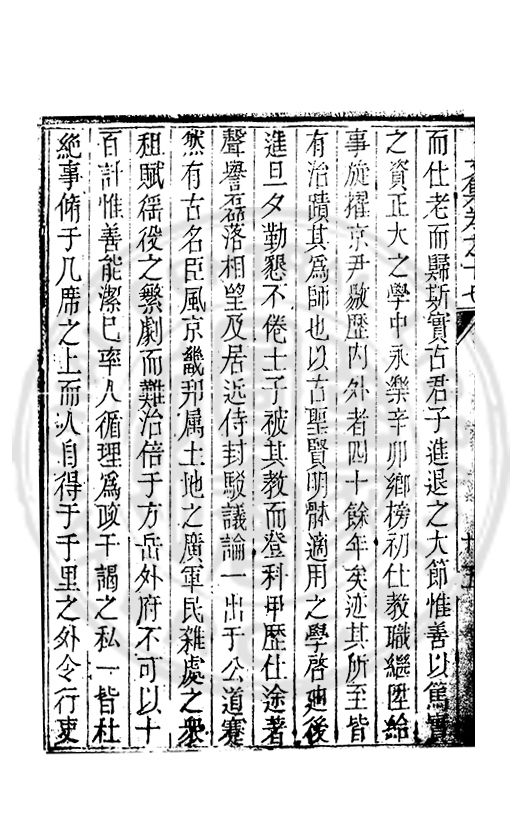 而仕老而歸斯實古君子進退之大節惟善以篤實
之資正大之學中永樂辛卯鄉榜初仕教職繼陞給
事旋擢京尹敭歷内外者四十餘年矣迹其所至皆
有治蹟其爲師也以古聖賢明骵適用之學啓廸後
進旦夕勤懇不倦士子被其教而登科甲歷仕途著
聲譽磊落相望及居近侍封駁議論一出于公道蹇
然有古名臣風京畿邦属土地之廣軍民雜處之衆
租賦徭役之繁劇而難治倍于方岳外府不可以十
百計惟善能潔已率人循理爲政干謁之私一皆杜
絶事脩于几席之上而人自得于千里之外令行吏